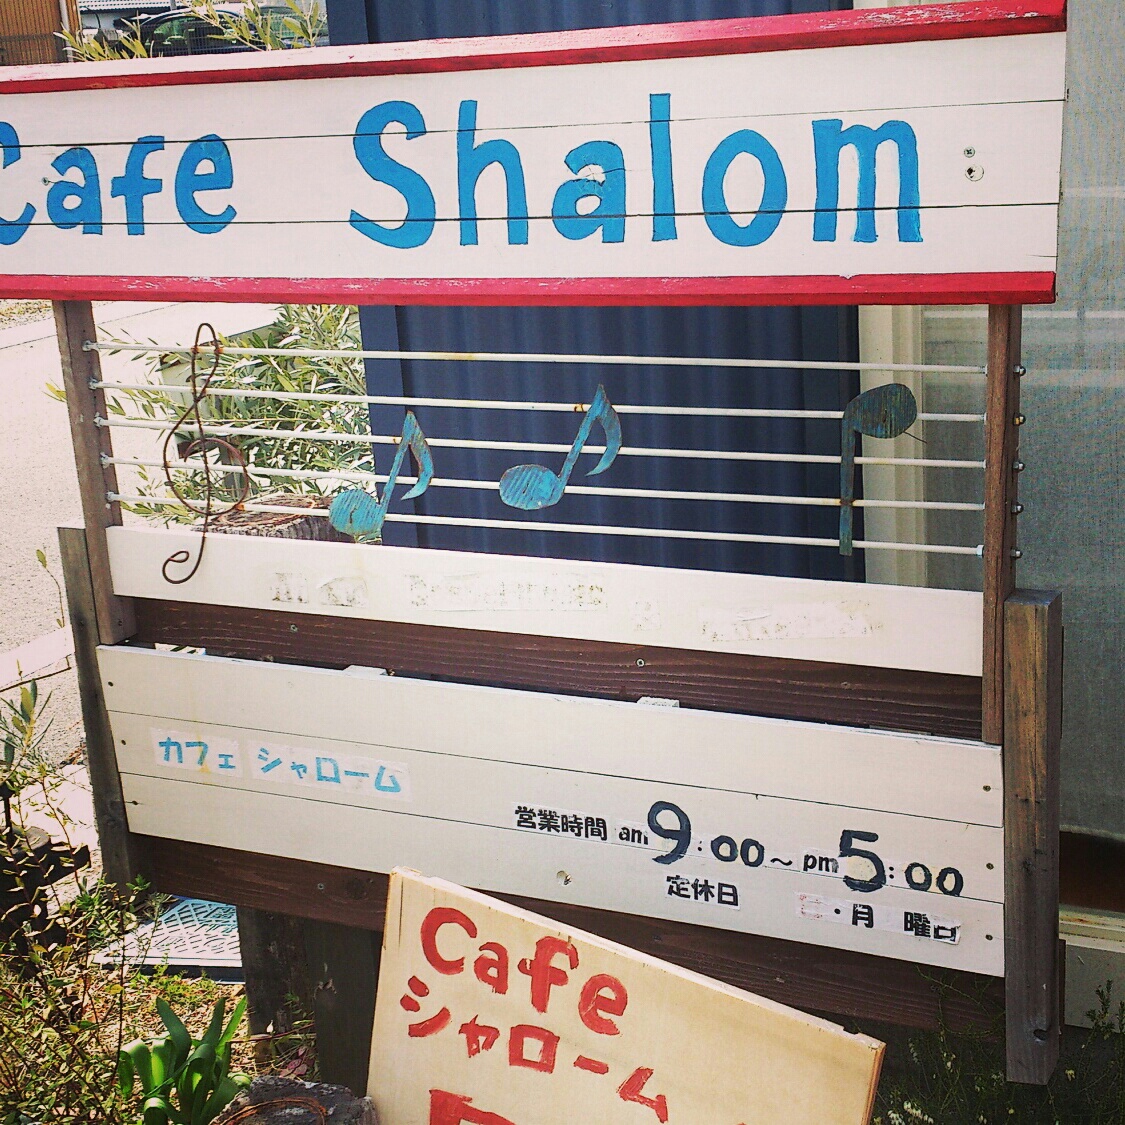 Cafe Shalom
カフェ シャローム
営業時間 am 9:00～pm 5:00
定休日 ・月 曜日
Cafe
シャローム